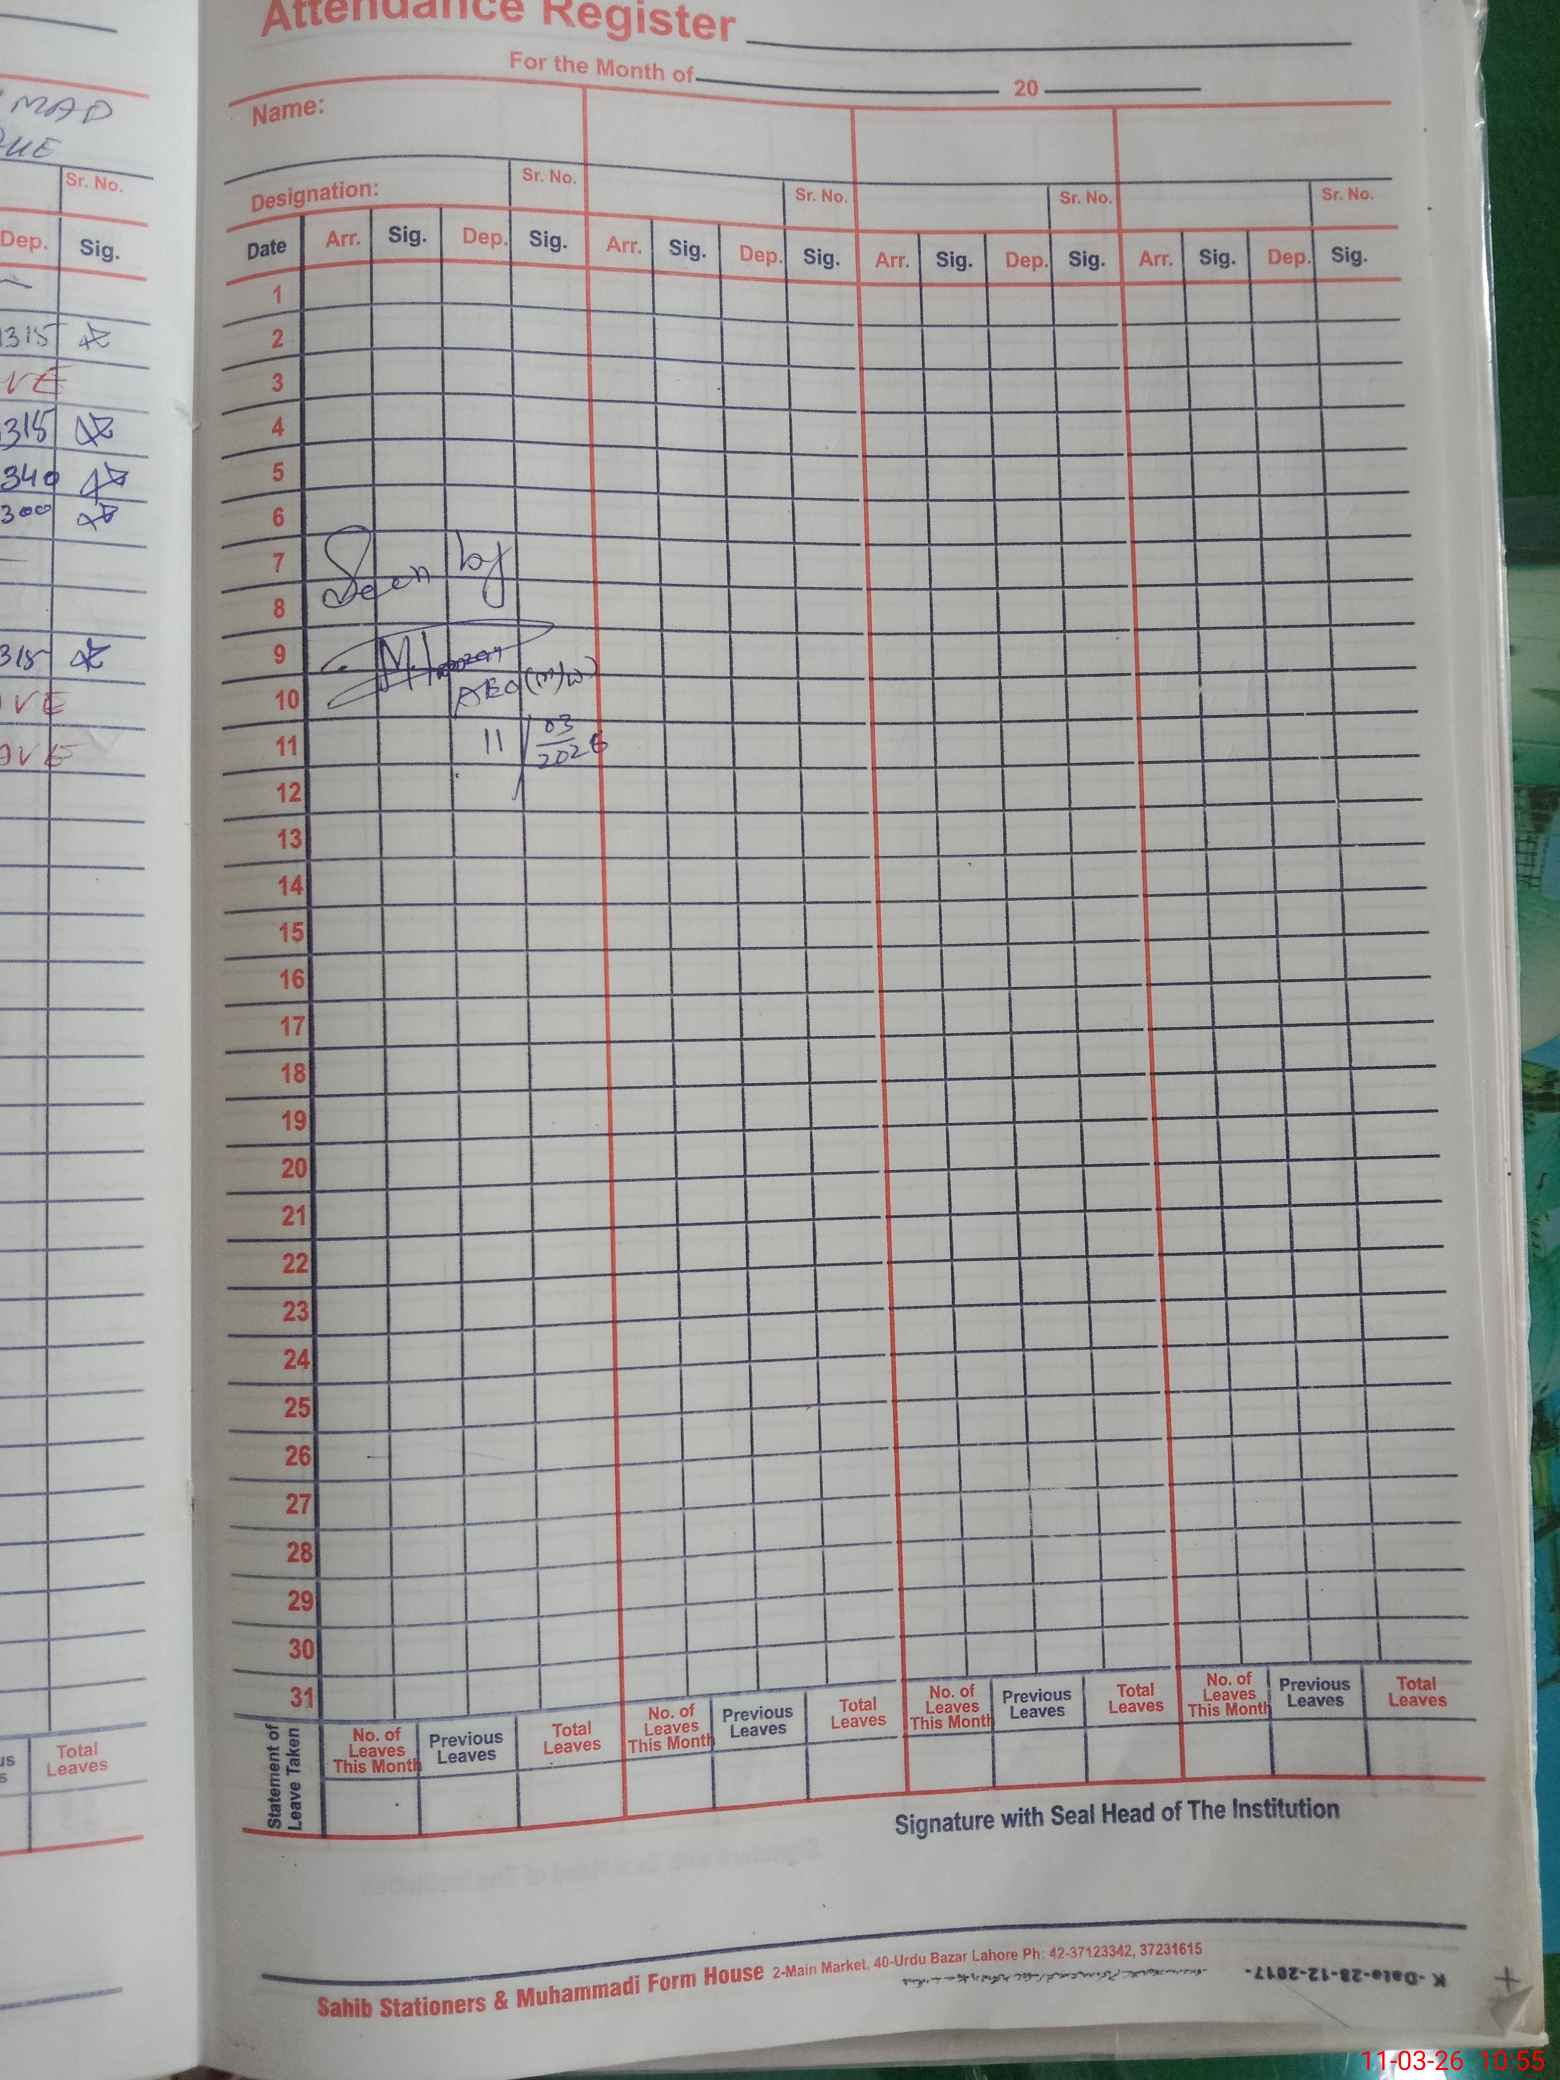 MAD
QUE
Sr. No.
Dep. Sig.
1315
VE
1315
340
300
315
VE
AVE
Total
Leaves
Attendance Register
For the Month of 20
Name:
Designation: Sr. No. Sr. No. Sr. No. Sr. No.
Date Arr. Sig. Dep. Sig. Arr. Sig. Dep. Sig. Arr. Sig. Dep. Sig. Arr. Sig. Dep. Sig.
1
2
3
4
5
6
7
Seen by
8
9
10
11
11/03/2026
12
13
14
15
16
17
18
19
20
21
22
23
24
25
26
27
28
29
30
31
Statement of Leave Taken
No. of Leaves This Month Previous Leaves Total Leaves No. of Leaves This Month Previous Leaves Total Leaves No. of Leaves This Month Previous Leaves Total Leaves No. of Leaves This Month Previous Leaves Total Leaves
Signature with Seal Head of The Institution
Sahib Stationers & Muhammadi Form House 2-Main Market, 40-Urdu Bazar Lahore Ph: 42-37123342, 37231615
K-Date-28-12-2017-
11-03-26 10:55